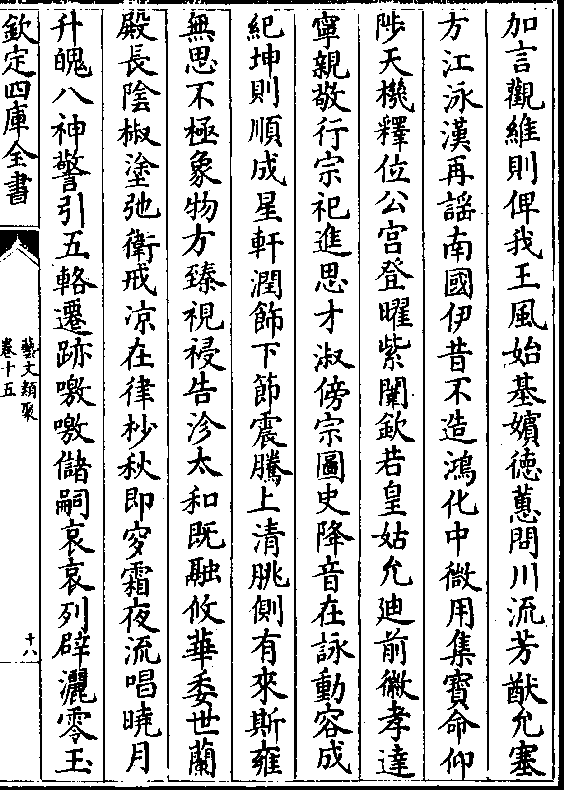 加言觀維則俾我王風始基嬪德蕙問川流芳猷允塞
方江泳漢再謡南國伊昔不造鴻化中微用集寳命仰
陟天機釋位公宫登曜紫闈欽若皇姑允廸前徽孝達
寧親敬行宗祀進思才淑傍宗圖史降音在詠動容成
紀坤則順成星軒潤飾下節震騰上清朓側有來斯雍
無思不極象物方臻視祲告沴太和既融收華委世蘭
殿長陰椒塗弛衛戒凉在律杪秋即穸霜夜流唱曉月
升魄八神警引五輅遷跡噭噭儲嗣哀哀列辟灑零玉
欽定四庫全書
藝文類聚
卷十五
十八